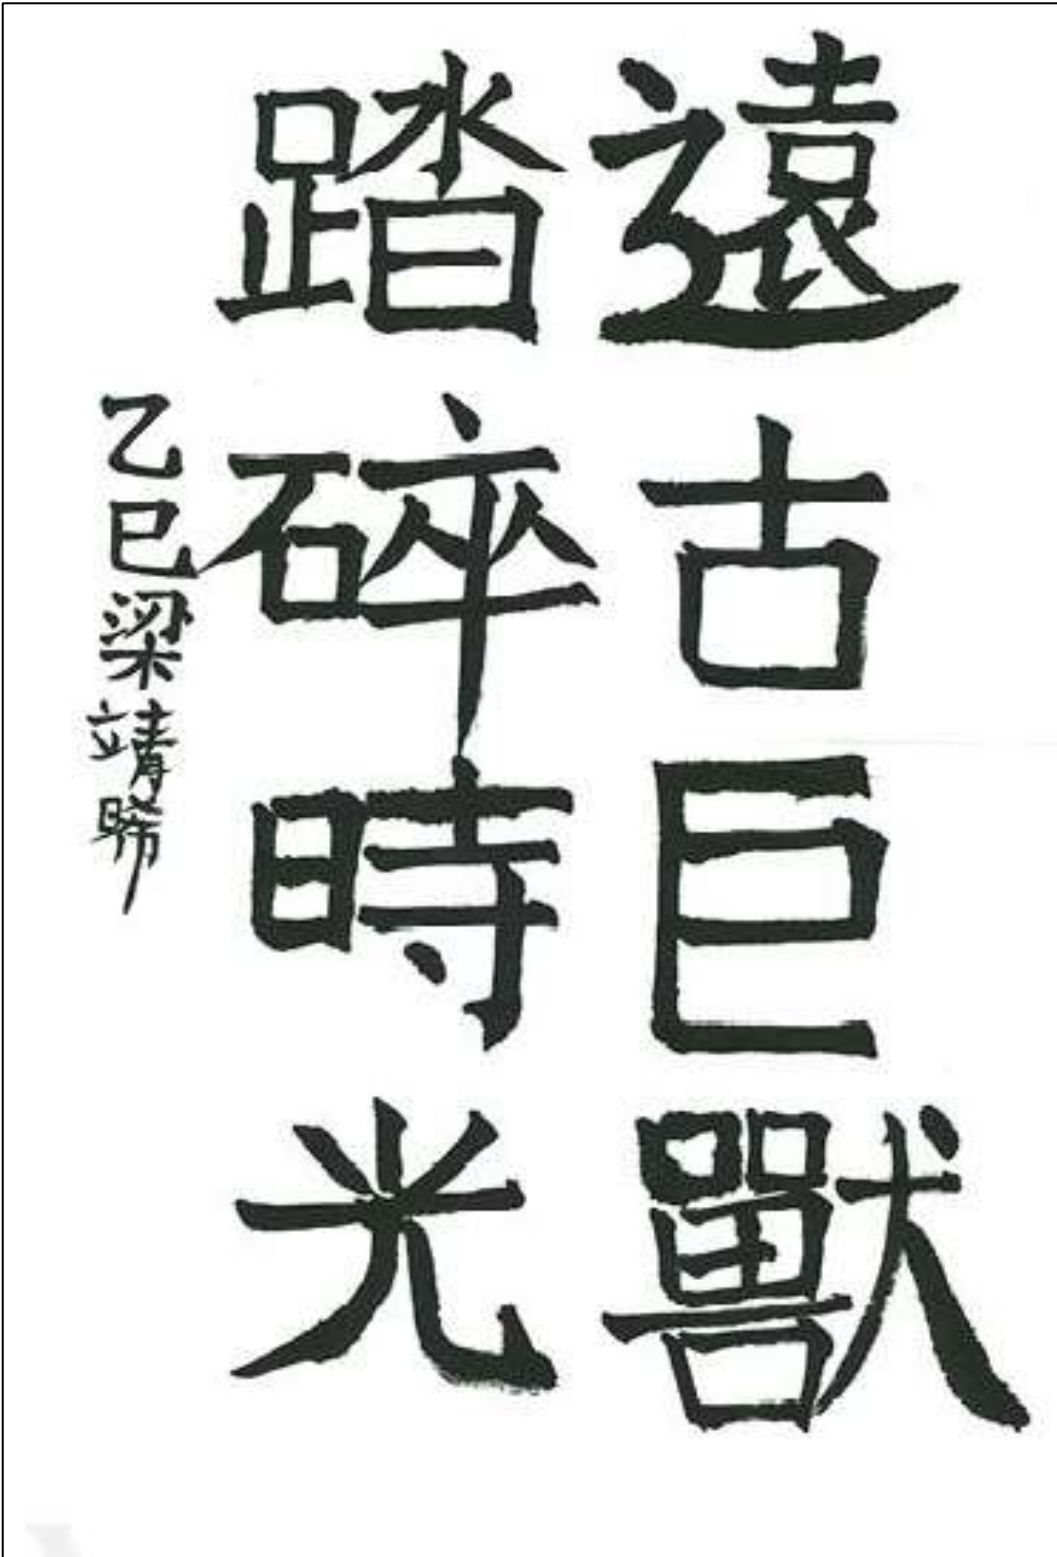 遠古巨獸
踏碎時光
乙巳梁靖晞